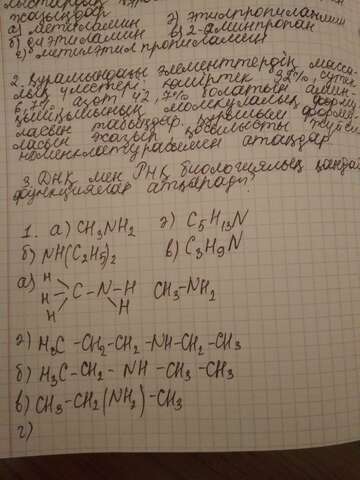 жазыңдар
а) метиламин ә) этилпропиламин
б) диэтиламин в) 2-аминпропан
г) метилэтилпропиламин
2. Құрамындағы элементтердің масса-
лық үлестері: көміртек
6,7%, азот болатын амин-
қышқылының молекулалық форму-
ласын табыңдар. Құрылым формула-
ласын жазып, қосылысты жүйелі
номенклатурамен атаңдар.
3. ДНҚ мен РНҚ биологиялық қандай
функциялар атқарады?
1. а) CH3NH2 ә) C5H13N
б) NH(C2H5)2 в) C3H9N
а) H
H - C - N - H CH3-NH2
H H
ә) H3C - CH2 - CH2 - NH - CH2 - CH3
б) H3C - CH2 - NH - CH2 - CH3
в) CH3 - CH2(NH2) - CH3
г)